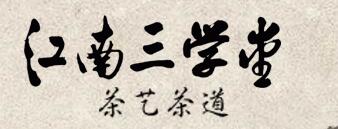 江南三学堂
茶艺茶道